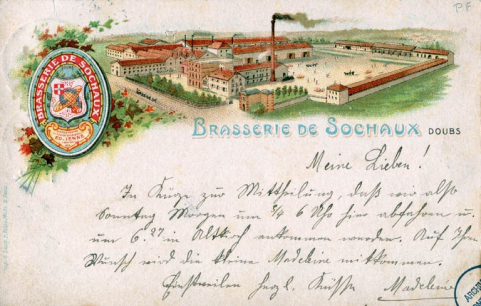 P F
BRASSERIE DE SOCHAUX
BRASSERIE DE SOCHAUX DOUBS
Meine Lieben!
In Kürze zur Mittheilung, daß wir also
Sonntag Morgen um 3/4 6 Uhr hier abfahren u.
um 6.27 in Altkirch ankommen werden. Auf Ihren
Wunsch wird die kleine Madeleine mitkommen.
Einstweilen herzl. Küsse Madeleine
ARCHIV